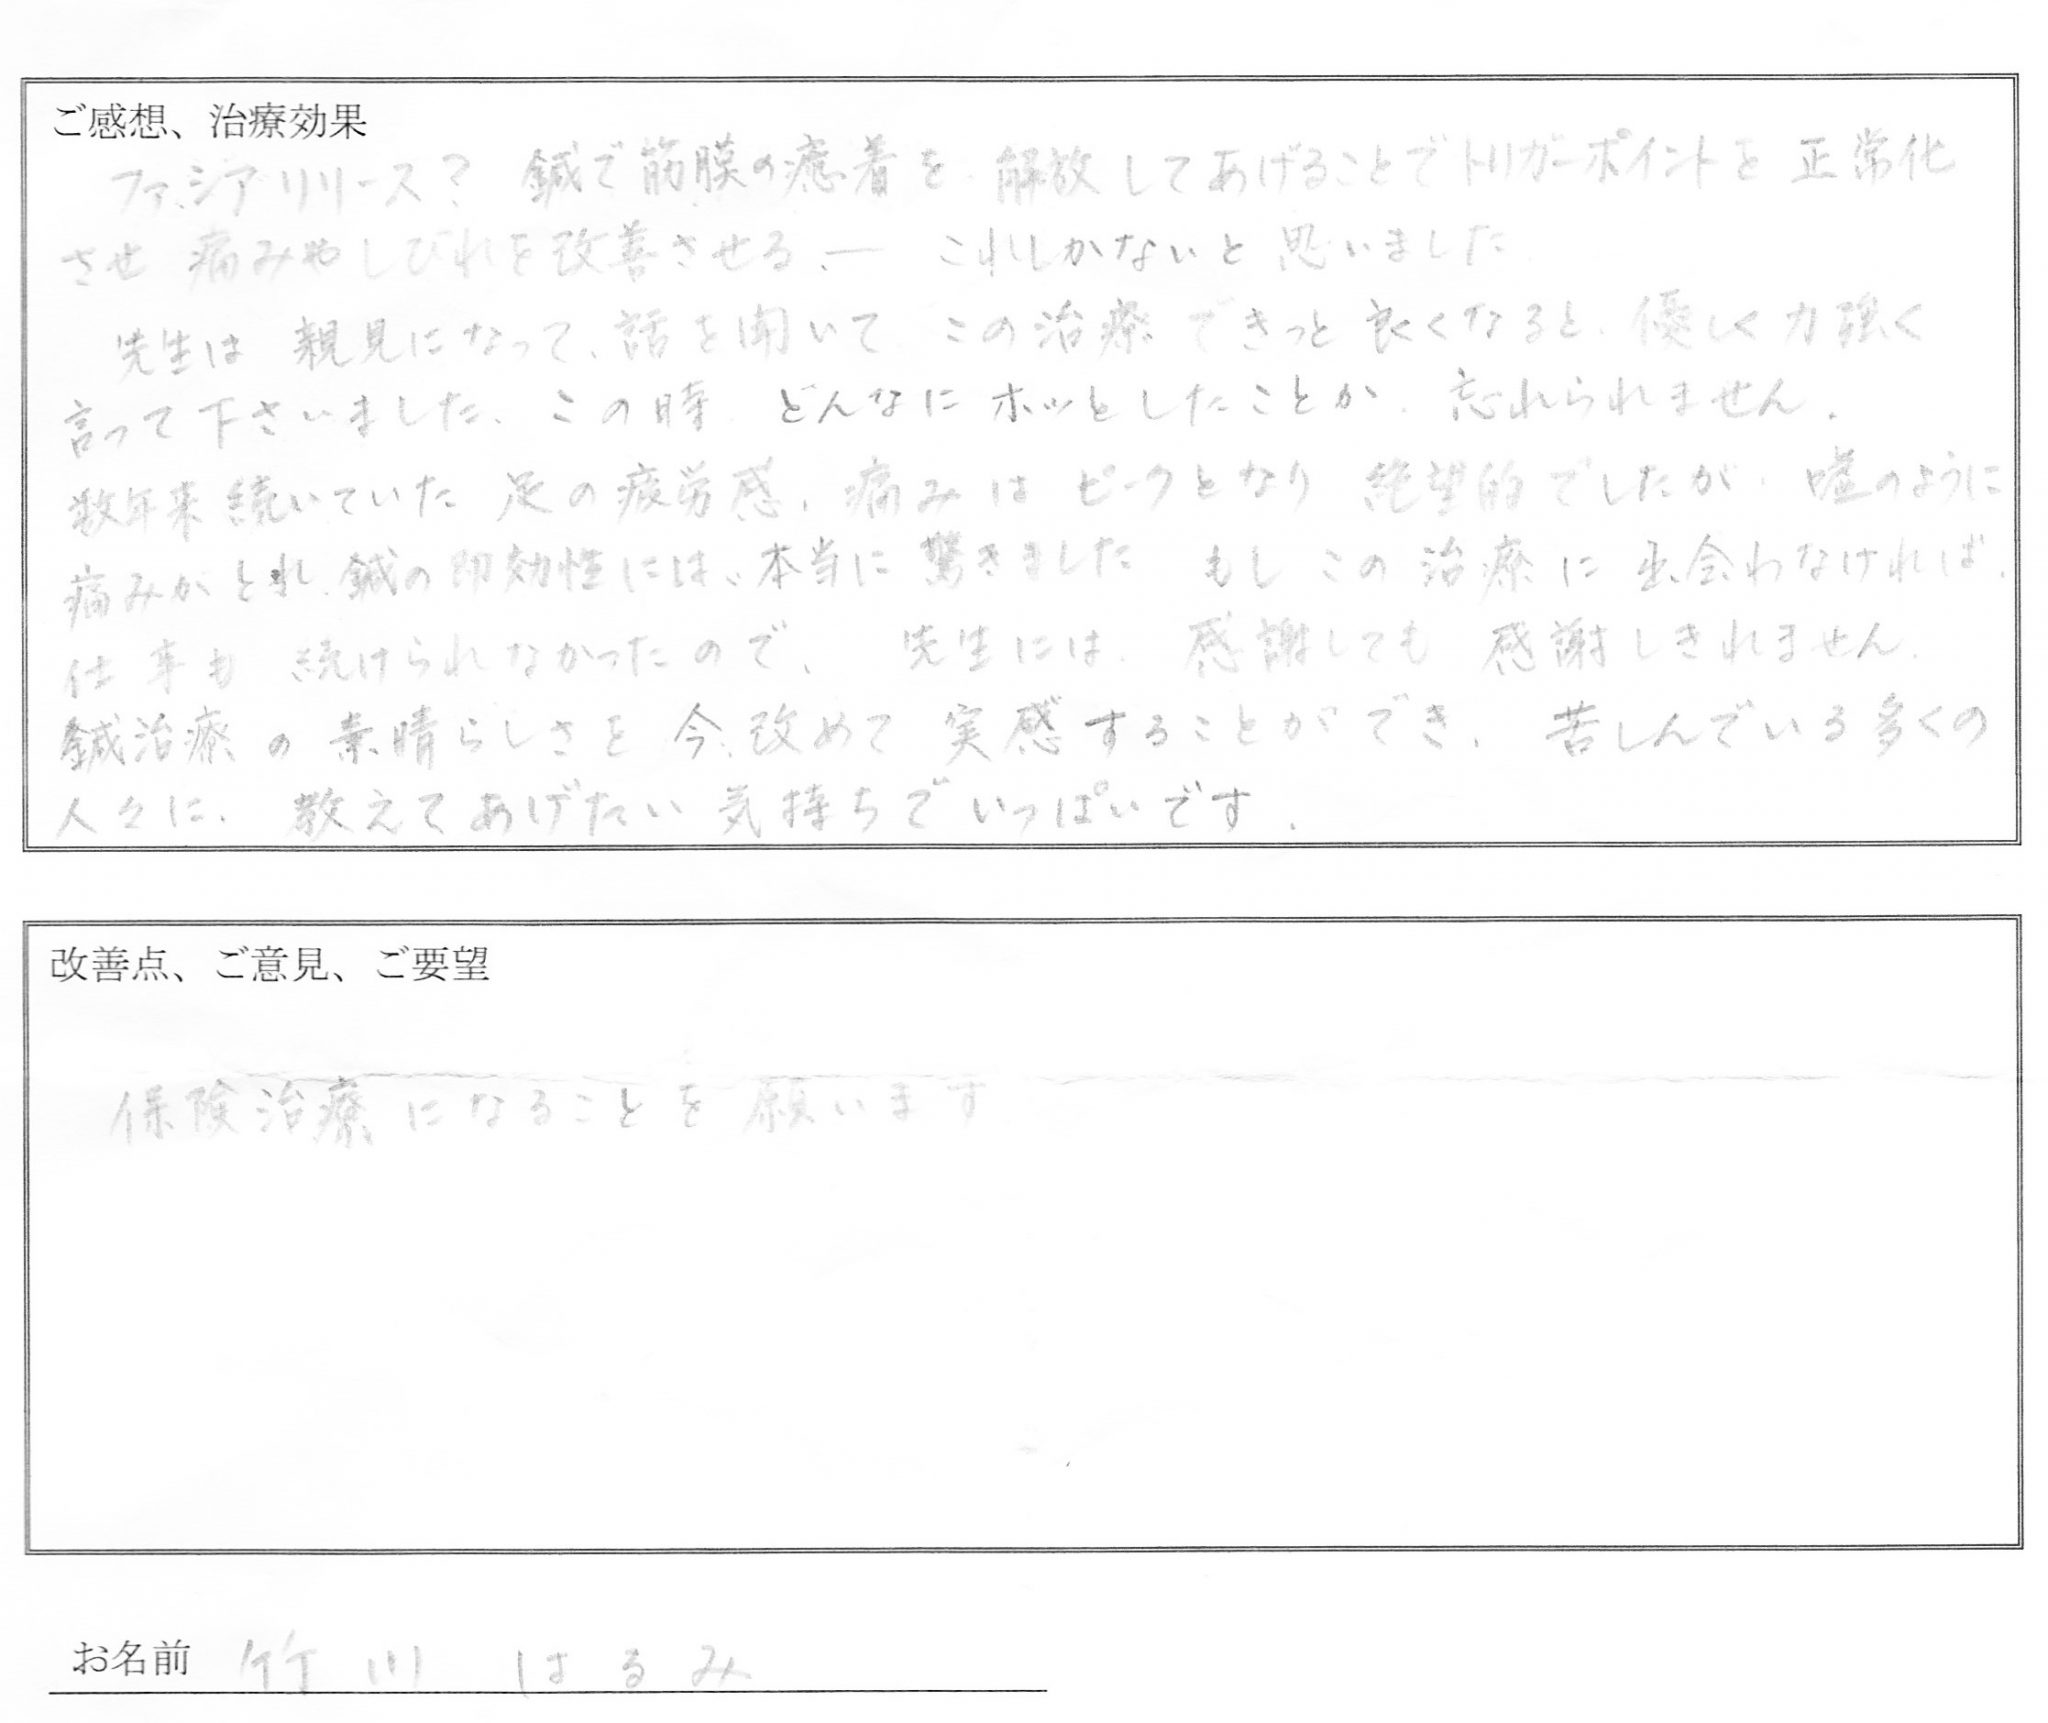 ご感想、治療効果
ファシアリリース？ 鍼で筋膜の癒着を、解放してあげることでトリガーポイントを正常化
させ 痛みやしびれを改善させる、― これしかないと思いました
先生は 親見になって、話を聞いて この治療できっと良くなると、優しく力強く
言って下さいました、この時、どんなにホッとしたことか、忘れられません.
数年来続いていた 足の疲労感、痛みは ピークとなり 絶望的でしたが、嘘のように
痛みがとれ、鍼の即効性には、本当に驚きました もし この治療に出会わなければ、
仕事も 続けられなかったので、 先生には、感謝しても 感謝しきれません.
鍼治療の素晴らしさを 今、改めて 実感することができ、苦しんでいる多くの
人々に、教えてあげたい気持ちでいっぱいです.
改善点、ご意見、ご要望
保険治療になることを願います
お名前 竹川 はるみ